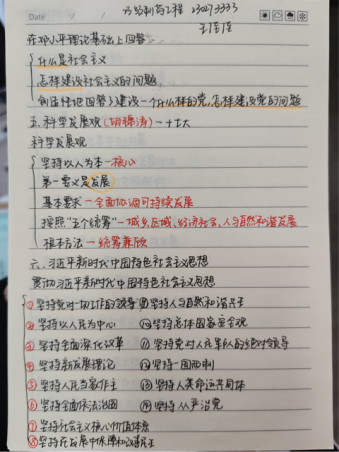 Date
制药工程 230273333
在邓小平理论基础上回答
什么是社会主义
怎样建设社会主义的问题,
创造性地回答了建设一个什么样的党,怎样建设党的问题
五.科学发展观(胡锦涛)—十七大
科学发展观
坚持以人为本—核心
第一要义是发展
基本要求—全面协调可持续发展
按照“五个统筹”—城乡,区域,经济社会,人与自然和谐发展
根本方法—统筹兼顾
六.习近平新时代中国特色社会主义思想
贯彻习近平新时代中国特色社会主义思想
①坚持党对一切工作的领导 ⑨坚持人与自然和谐共生
②坚持以人民为中心 ⑩坚持总体国家安全观
③坚持全面深化改革 ⑪坚持党对人民军队的绝对领导
④坚持新发展理论 ⑫坚持一国两制
⑤坚持人民当家作主 ⑬坚持人类命运共同体
⑥坚持全面依法治国 ⑭坚持从严治党
⑦坚持社会主义核心价值体系
⑧坚持在发展中保障和改善民生